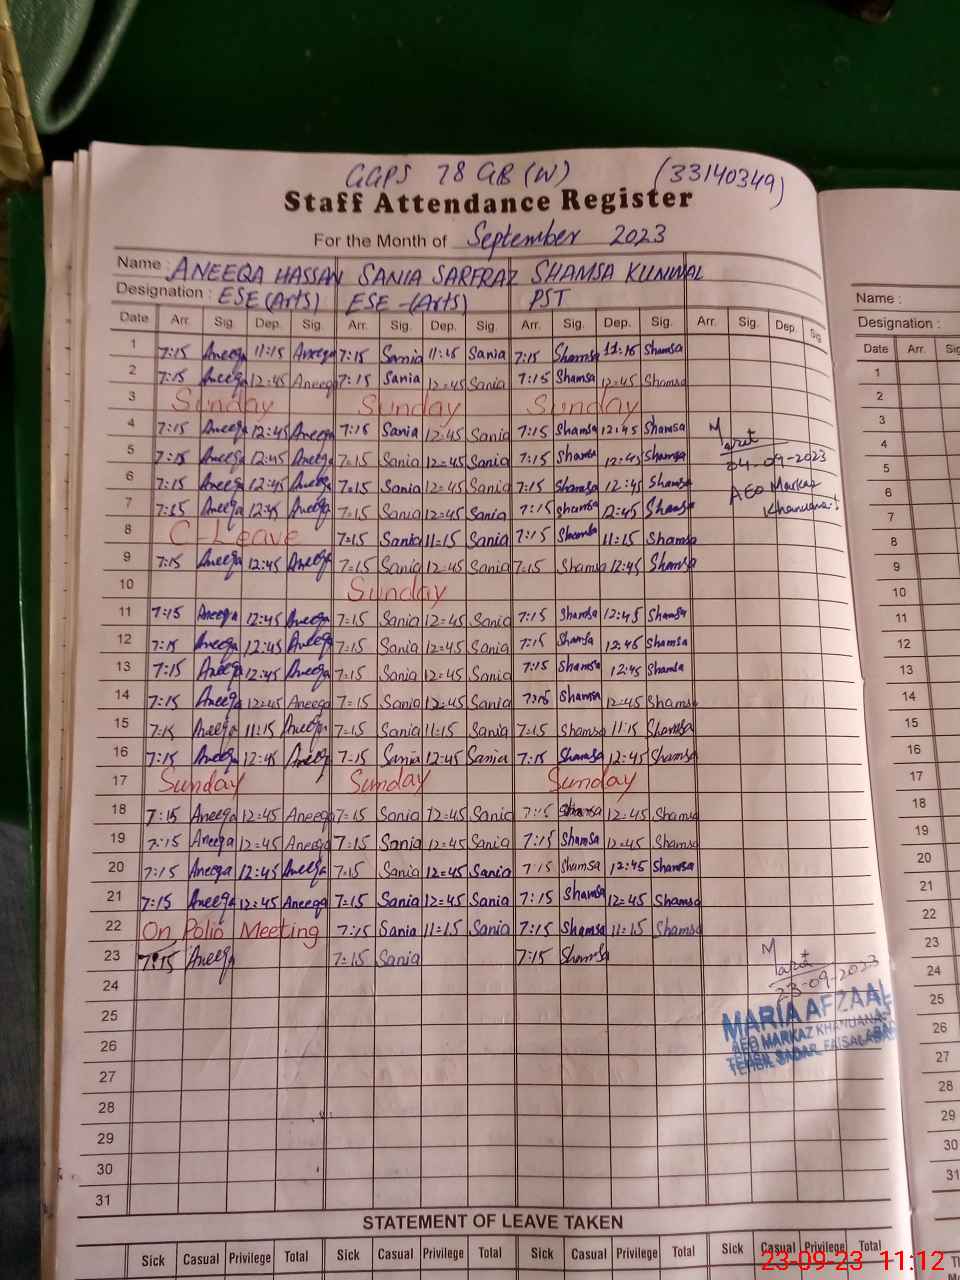 GGPS 78 GB (W) (33140349)
Staff Attendance Register
For the Month of September 2023
Name : ANEEQA HASSAN SANIA SARFRAZ SHAMSA KUNWAL
Designation : ESE (Arts) ESE -(Arts) PST
Date Arr. Sig. Dep. Sig. Arr. Sig. Dep. Sig. Arr. Sig. Dep. Sig. Arr. Sig. Dep. Sig
1 7:15 Aneeqa 11:15 Aneeqa 7:15 Sania 11:15 Sania 7:15 Shamsa 11:15 Shamsa
2 7:15 Aneeqa 12:45 Aneeqa 7:15 Sania 12:45 Sania 7:15 Shamsa 12:45 Shamsa
3 Sunday Sunday Sunday
4 7:15 Aneeqa 12:45 Aneeqa 7:15 Sania 12:45 Sania 7:15 Shamsa 12:45 Shamsa
5 7:15 Aneeqa 12:45 Aneeqa 7=15 Sania 12=45 Sania 7:15 Shamsa 12:45 Shamsa
04-09-2023
6 7:15 Aneeqa 12:45 Aneeqa 7=15 Sania 12=45 Sania 7:15 Shamsa 12:45 Shamsa
AEO Markaz
7 7:15 Aneeqa 12:45 Aneeqa 7=15 Sania 12=45 Sania 7:15 Shamsa 12:45 Shamsa
Khanuana
8 C-Leave 7=15 Sania 11=15 Sania 7:15 Shamsa 11:15 Shamsa
9 7:15 Aneeqa 12:45 Aneeqa 7=15 Sania 12=45 Sania 7=15 Shamsa 12:45 Shamsa
10 Sunday
11 7:15 Aneeqa 12:45 Aneeqa 7=15 Sania 12=45 Sania 7:15 Shamsa 12:45 Shamsa
12 7:15 Aneeqa 12:45 Aneeqa 7=15 Sania 12=45 Sania 7:15 Shamsa 12:45 Shamsa
13 7:15 Aneeqa 12:45 Aneeqa 7=15 Sania 12=45 Sania 7:15 Shamsa 12:45 Shamsa
14 7:15 Aneeqa 12=45 Aneeqa 7=15 Sania 12=45 Sania 7:15 Shamsa 12=45 Shamsa
15 7:15 Aneeqa 11:15 Aneeqa 7=15 Sania 11=15 Sania 7=15 Shamsa 11:15 Shamsa
16 7:15 Aneeqa 12:45 Aneeqa 7=15 Sania 12=45 Sania 7:15 Shamsa 12:45 Shamsa
17 Sunday Sunday Sunday
18 7:15 Aneeqa 12=45 Aneeqa 7=15 Sania 12=45 Sania 7:15 Shamsa 12=45 Shamsa
19 7:15 Aneeqa 12=45 Aneeqa 7=15 Sania 12=45 Sania 7:15 Shamsa 12=45 Shamsa
20 7:15 Aneeqa 12:45 Aneeqa 7=15 Sania 12=45 Sania 7:15 Shamsa 12:45 Shamsa
21 7:15 Aneeqa 12=45 Aneeqa 7=15 Sania 12=45 Sania 7:15 Shamsa 12=45 Shamsa
22 On Polio Meeting 7:15 Sania 11=15 Sania 7:15 Shamsa 11=15 Shamsa
23 7:15 Aneeqa 7=15 Sania 7:15 Shamsa
24
23-09-2023
25
MARIA AFZAAL
26
AEO MARKAZ KHANUANA
TEHSIL SADAR FAISALABAD
27
28
29
30
31
STATEMENT OF LEAVE TAKEN
Sick Casual Privilege Total Sick Casual Privilege Total Sick Casual Privilege Total Sick Casual Privilege Total
Name :
Designation :
Date Arr. Sig
1
2
3
4
5
6
7
8
9
10
11
12
13
14
15
16
17
18
19
20
21
22
23
24
25
26
27
28
29
30
31
23-09-23 11:12